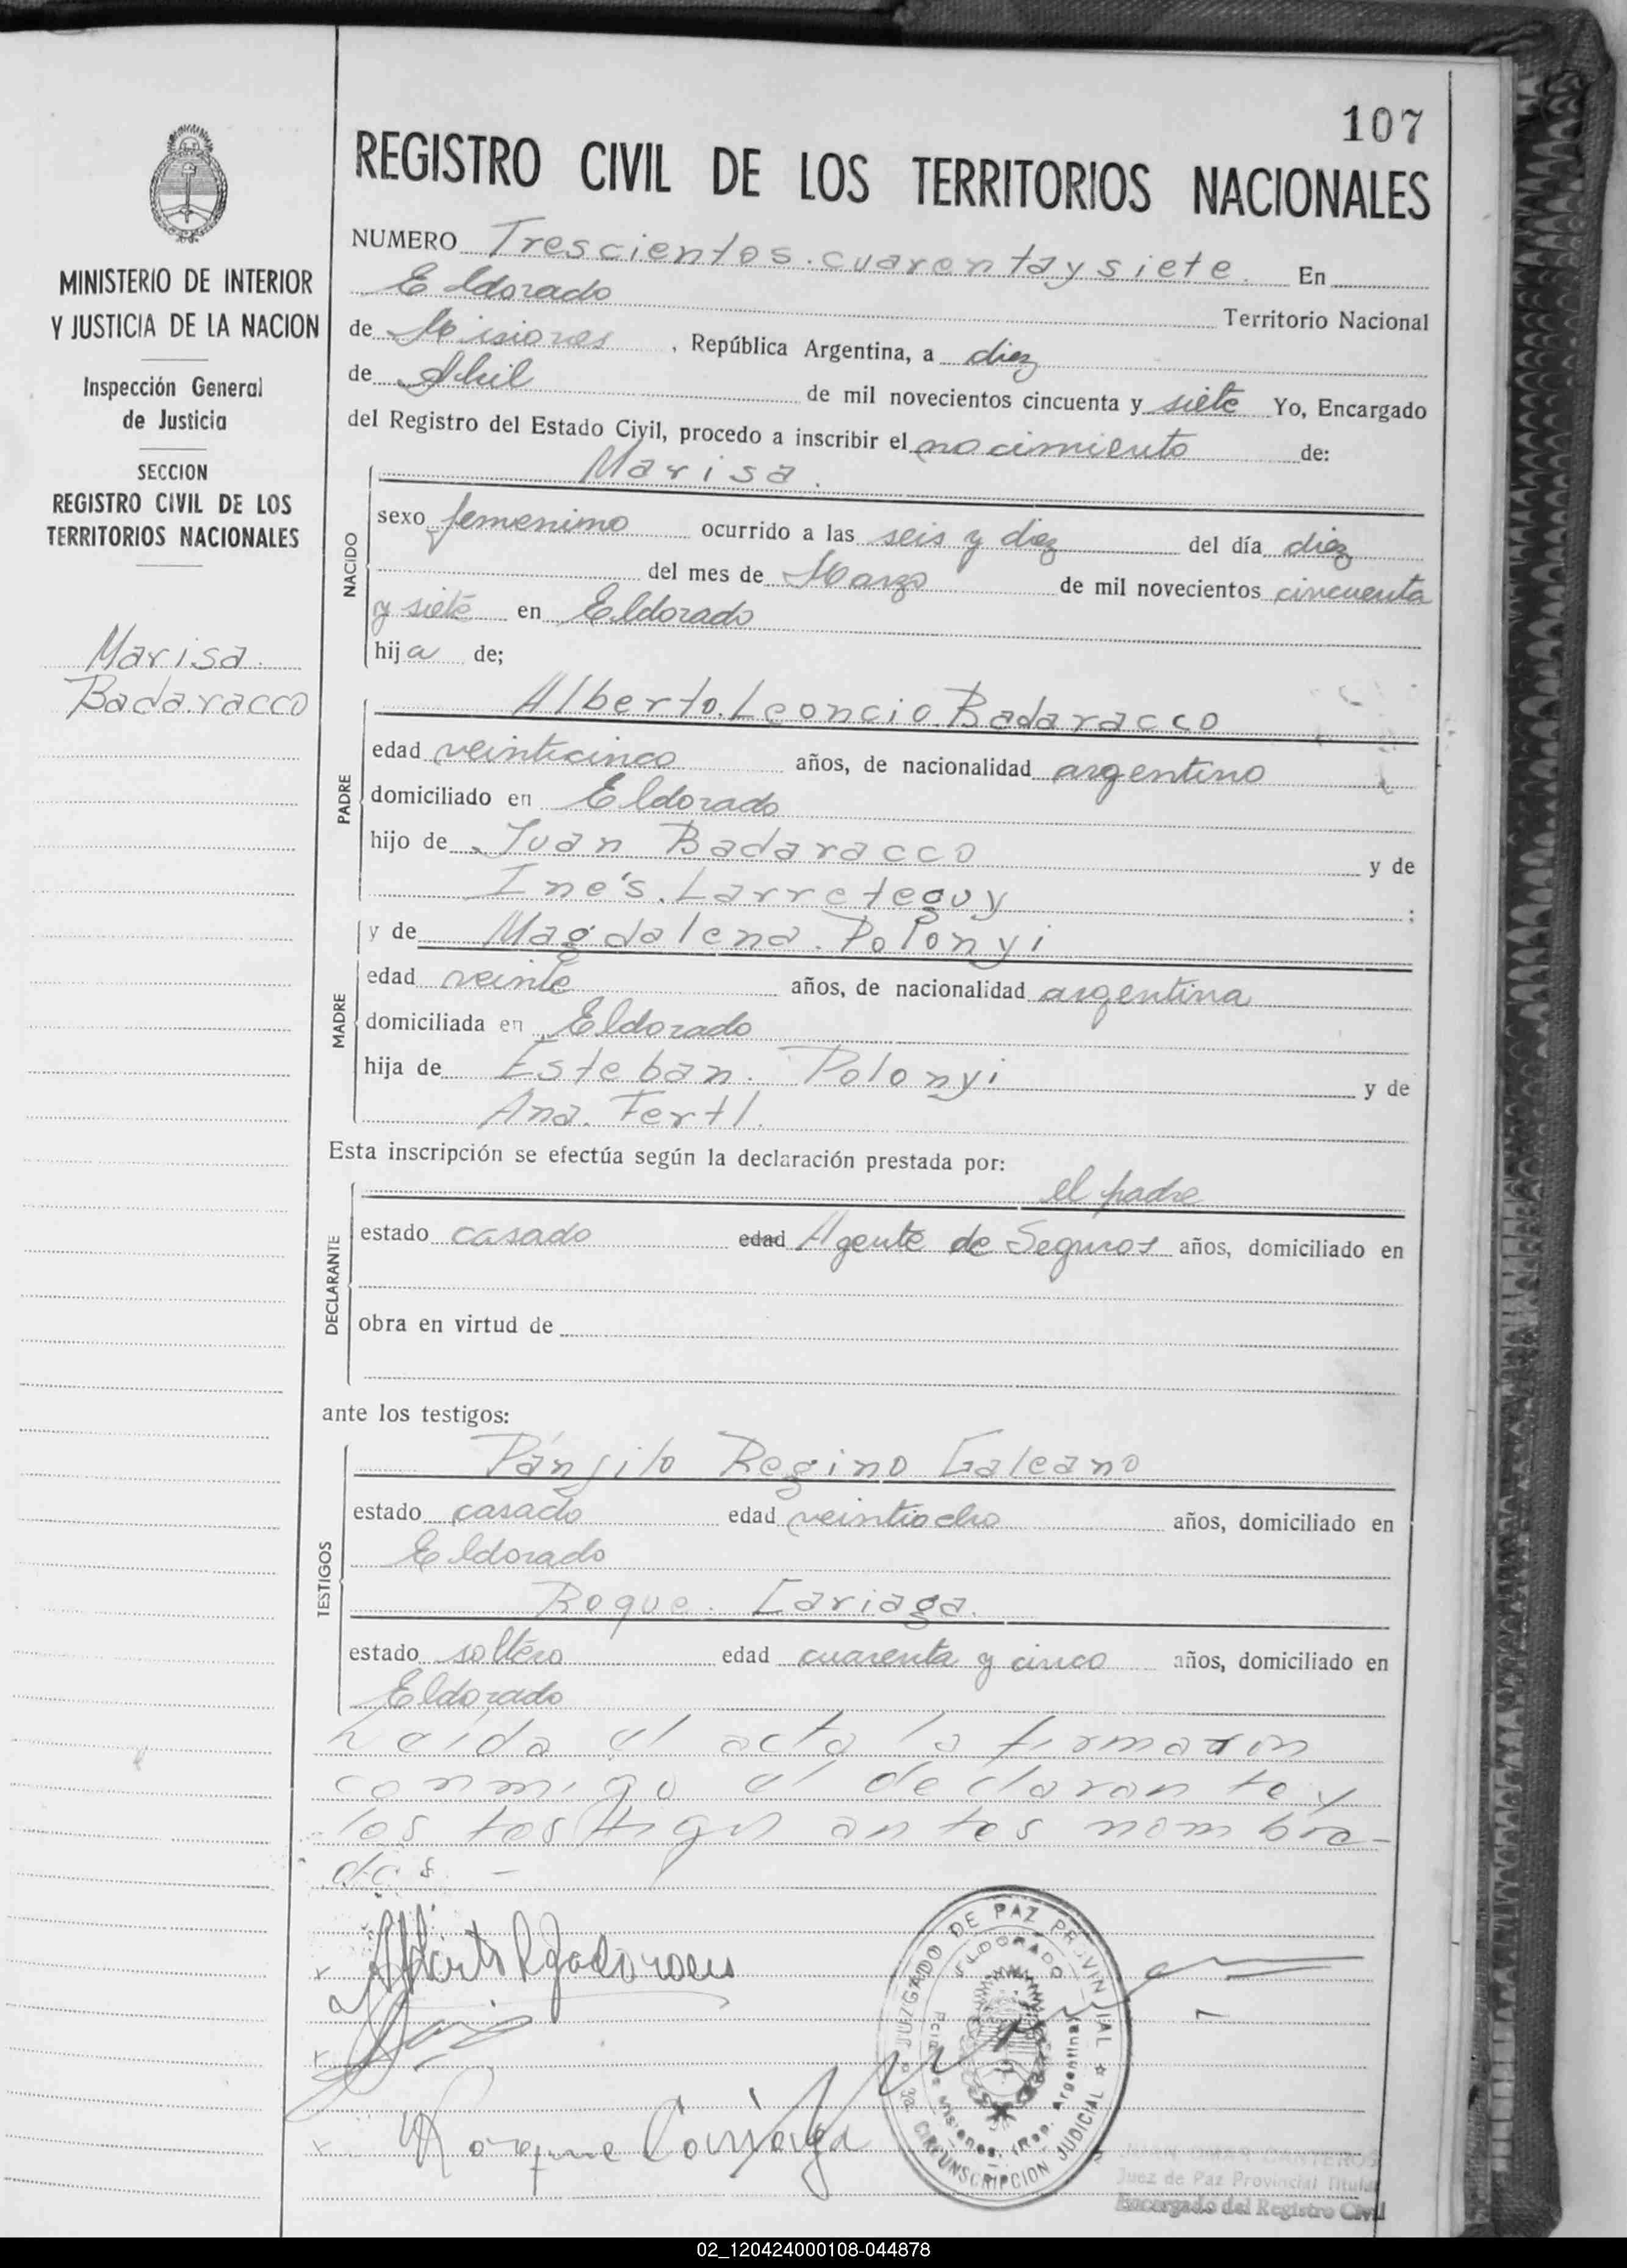 107
REGISTRO CIVIL DE LOS TERRITORIOS NACIONALES
MINISTERIO DE INTERIOR
Y JUSTICIA DE LA NACION
Inspección General
de Justicia
SECCION
REGISTRO CIVIL DE LOS
TERRITORIOS NACIONALES
Marisa
Badaracco
NUMERO Trescientos cuarenta y siete. En
Eldorado Territorio Nacional
de Misiones, República Argentina, a diez
de Abril de mil novecientos cincuenta y siete Yo, Encargado
del Registro del Estado Civil, procedo a inscribir el nacimiento de:
Marisa.
NACIDO
sexo femenino ocurrido a las seis y diez del día diez
del mes de Marzo de mil novecientos cincuenta
y siete en Eldorado
hija de;
PADRE
Alberto Leoncio Badaracco
edad veinticinco años, de nacionalidad argentino
domiciliado en Eldorado
hijo de Juan Badaracco y de
Inés Larreteguy;
y de Magdalena Polonyi
MADRE
edad veinte años, de nacionalidad argentina
domiciliada en Eldorado
hija de Esteban Polonyi y de
Ana Fertl.
Esta inscripción se efectúa según la declaración prestada por:
el padre
DECLARANTE
estado casado edad Agente de Seguros años, domiciliado en
obra en virtud de
ante los testigos:
TESTIGOS
Pánfilo Regino Galeano
estado casado edad veintiocho años, domiciliado en
Eldorado
Roque Cariaga.
estado soltero edad cuarenta y cinco años, domiciliado en
Eldorado
Leída el acta la firmaron
conmigo el declarante y
los testigos antes nombra-
dos.-
JUZGADO DE PAZ PROVINCIAL
ELDORADO
Pcia. de Misiones (Rep. Argentina)
CIRCUNSCRIPCION JUDICIAL
Roque Cariaga
JUAN OMAR CANTEROS
Juez de Paz Provincial Titular
Encargado del Registro Civil
02_120424000108-044878